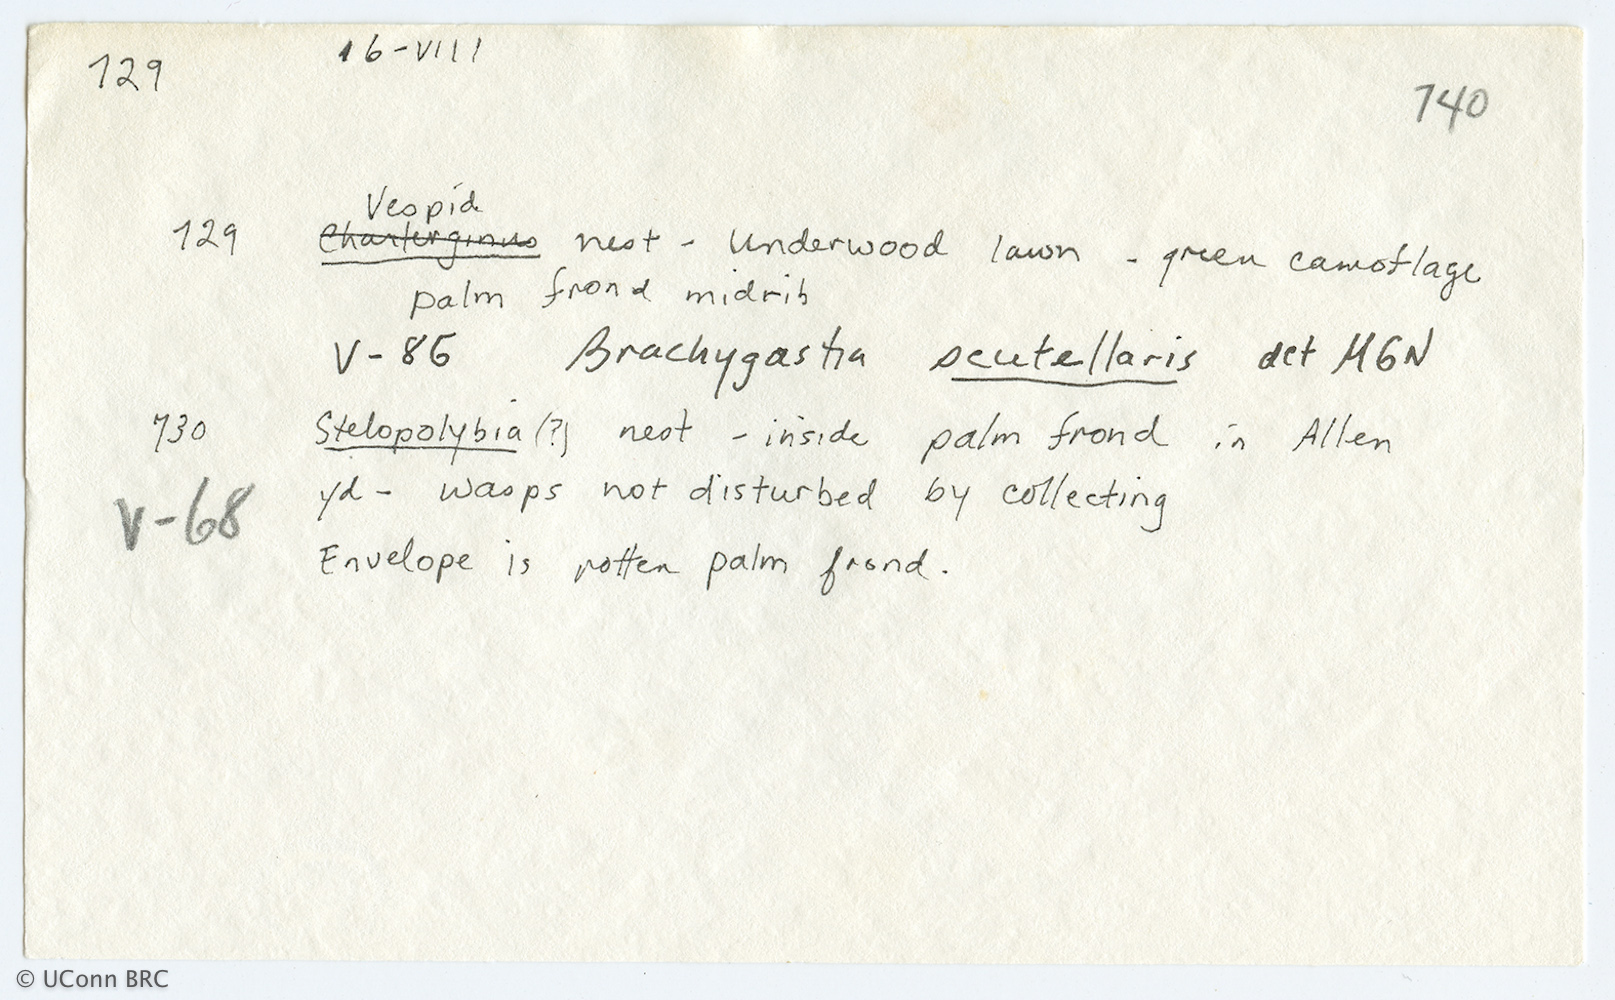 729
16-VIII
740
Vespid
729 Charterginus nest - Underwood lawn - green camoflage
palm frond midrib
V-86 Brachygastra scutellaris det MGN
730 Stelopolybia (?) nest - inside palm frond in Allen
yd - wasps not disturbed by collecting
V-68
Envelope is rotten palm frond.
© UConn BRC